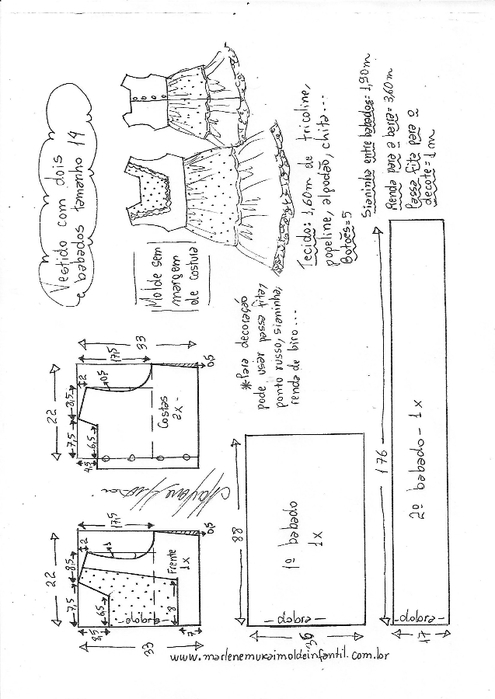 Vestido com dois
e babados tamanho 14
Molde sem
margem
de costura
Tecido: 1,60m de tricoline,
popeline, algodão, chita...
Botões=5
Sianinha entre babados: 1,90m
Renda para a barra= 3,60m
Passa fita para o
decote= 1m
*Para decoração
pode usar passa fita,
ponto russo, sianinha,
renda de biro...
22
7,5
8,5
2
17,5
33
0,5
6,5
4,5
Costas
2x-
0,5
22
7,5
8,5
2
17,5
33
6,5
8,5
Frente
1x
8
7
dobra
0,5
88
1º babado
1x
dobra
176
2º babado - 1x
dobra
17
www.marlenemukaimoldeinfantil.com.br